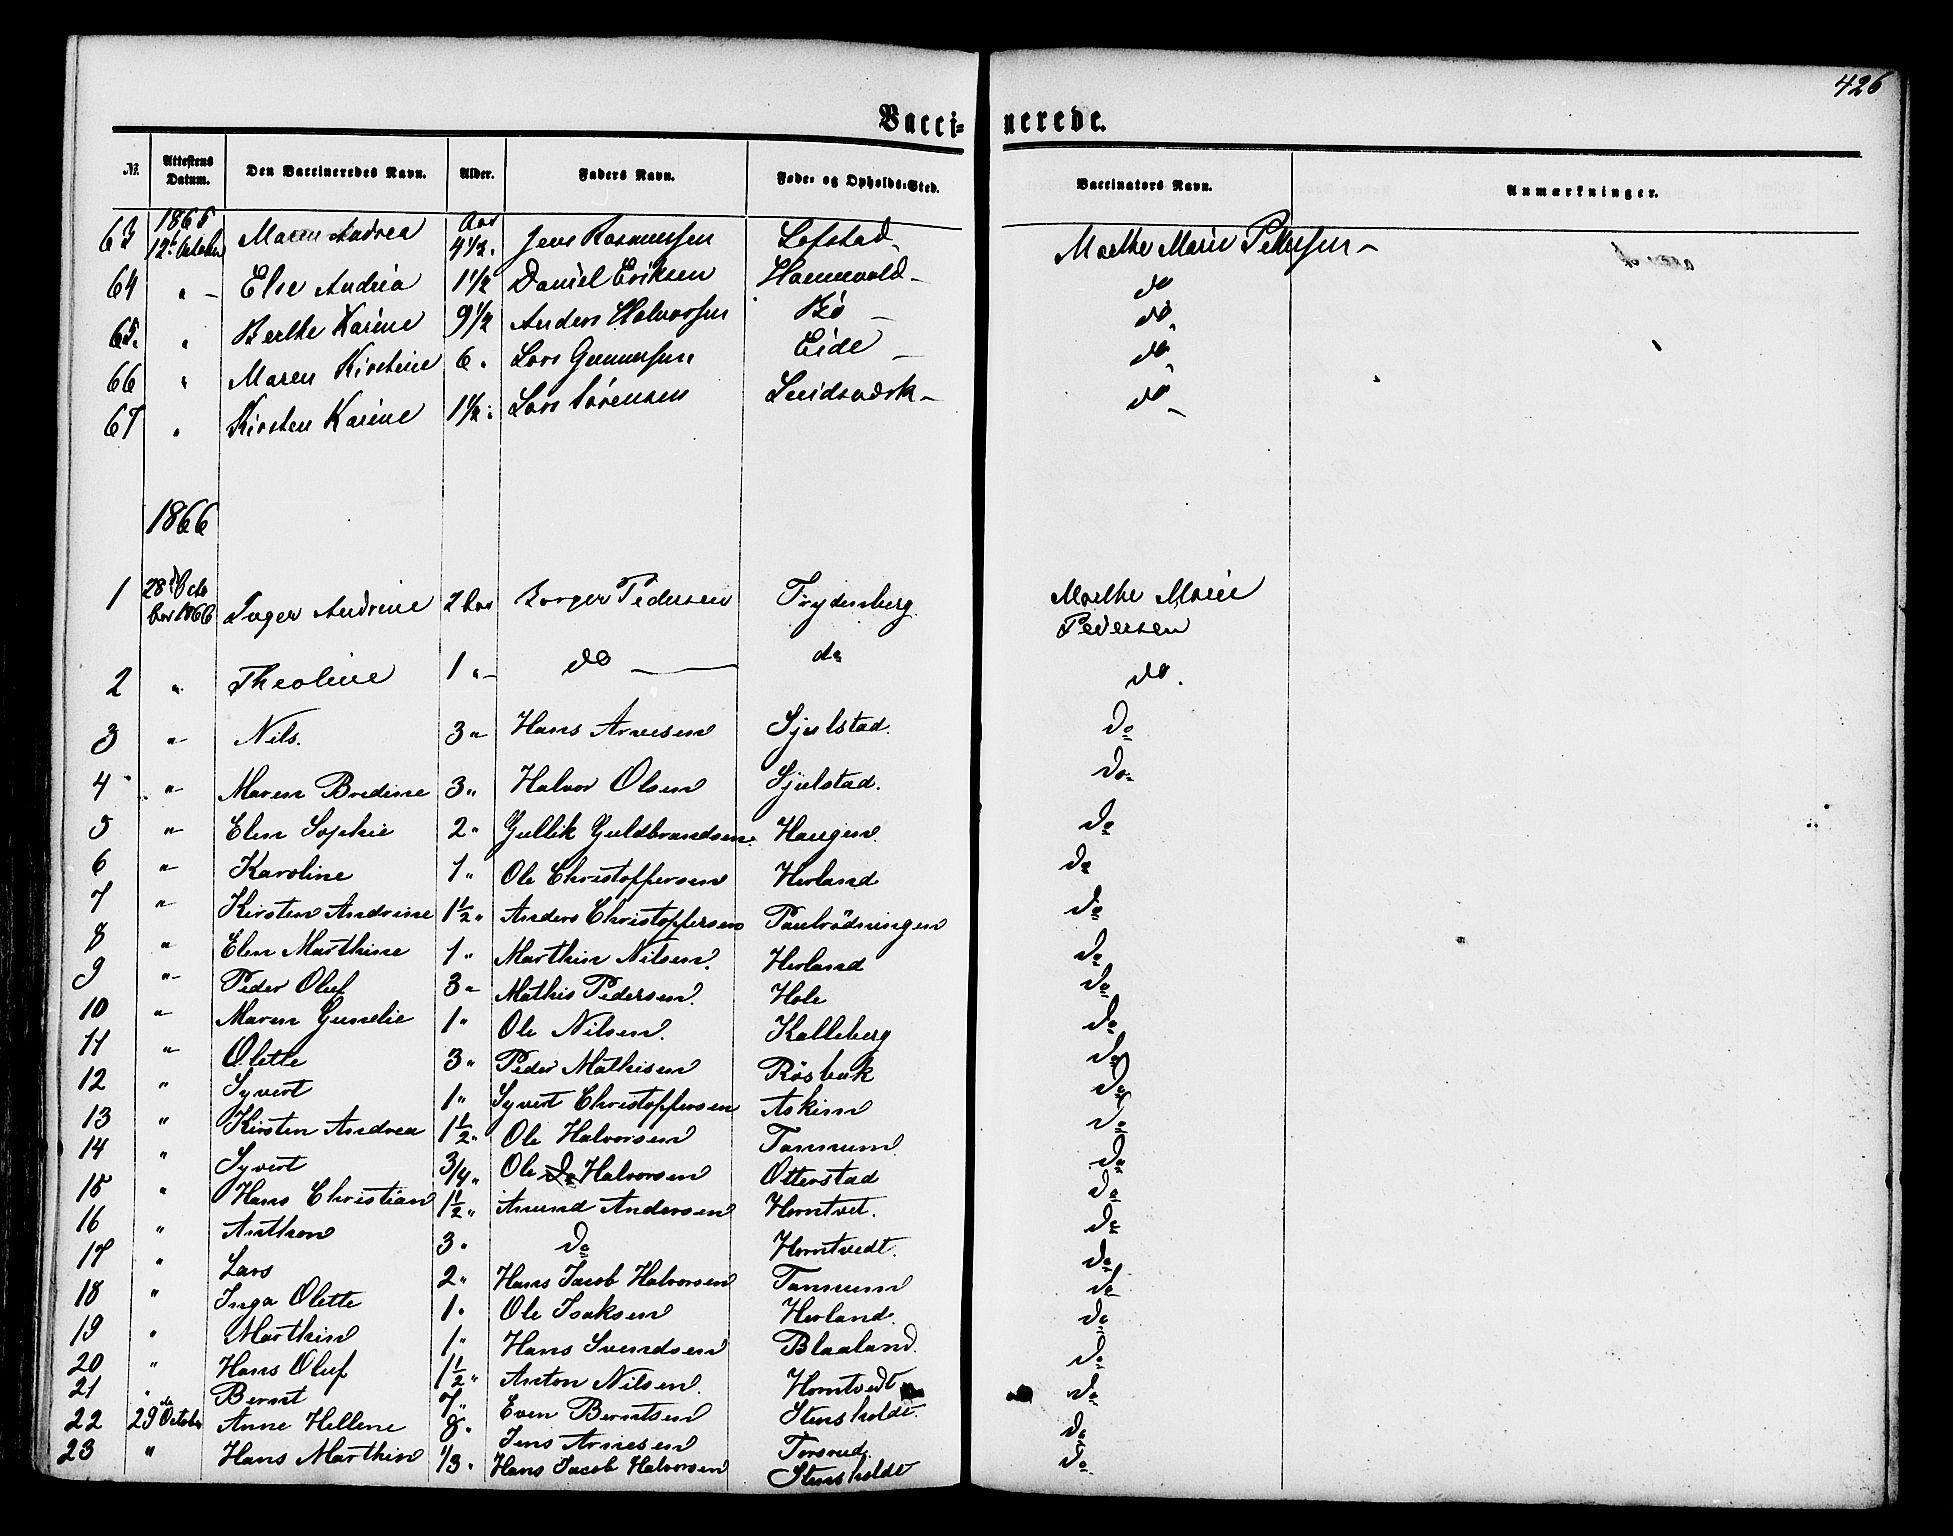 426
Vacci= nerede.
№ Attestens Datum. Den Vaccineredes Navn. Alder. Faders Navn. Føde= og Opholds=Sted. Vaccinators Navn. Anmærkninger.
1865 Aar
63 12te October Maren Andrea 4 1/2. Jens Rasmussen Lofstad Marthe Marie Pettersen
64 " Else Andrea 1 1/2 Daniel Eriksen do
65. " Berthe Karine 9 1/2 Anders Halvorsen Bø do
66 " Maren Kirstine 6. Lars Gunnersen Eide do
67 " Kirsten Karine 1 1/2. Lars Sørensen do
1866
1 28de Octo Marthe Marie
ber 1866 Inger Andrine 2 Aar Borger Pedersen Frydenberg. Pedersen
2 " Theoline 1 " do do do.
3 " Nils. 3 " Hans Arvesen Sjulstad. do
4 " Maren Bredine 3 " Halvor Olsen Sjulstad. do
5 " Elen Sophie 2 " Gullik Guldbrandsen. Haugen. do
6 " Karoline 1 " Ole Christoffersen Herland do
7 " Kirsten Andrine 1 1/2 " Anders Christoffersen Paulrödningen do
8 " Elen Marthine 1 " Marthin Nilsen. Herland do
9 " Peder Oluf 3 " Mathis Pedersen. Hole do
10 " Maren Gunelie 1 " Ole Nilsen. Kalleberg do
11 " Olette 3 " Peder Mathisen Røsbæk do
12 " Syvert 1 " Syvert Christoffersen Askim do
13 " Kirsten Andrea 1 1/2 " Ole Halvorsen Tannum do
14 " Syvert 3/4 " Ole do Halvorsen Otterstad do
15 " Hans Christian 1 1/2 " Amund Andersen Horntvet. do
16 " Anthon 3 " do Horntvedt. do
17 " Lars 2 " Hans Jacob Halvorsen Tannum do
18 " Inga Olette 1 " Ole Isaksen Herland. do
19 " Marthin 1 " Hans Svendsen Blaaland. do
20 " Hans Oluf 1 1/2 " Anton Nilsen. Horntvedt do
21 " Bernt 7 " Even Berntsen Stensholdt. do
22 29de October Anne Hellene 8 " Jens Arnesen Torsrud do
23 " Hans Marthin 1/3 " Hans Jacob Halvorsen Stensholdt do